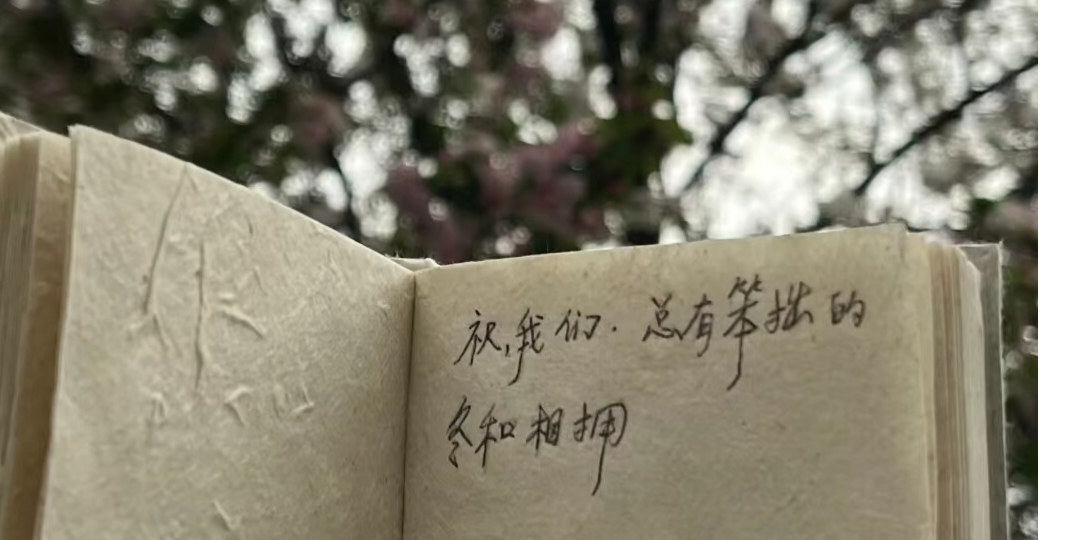 祝,我们. 总有笨拙的
冬和相拥